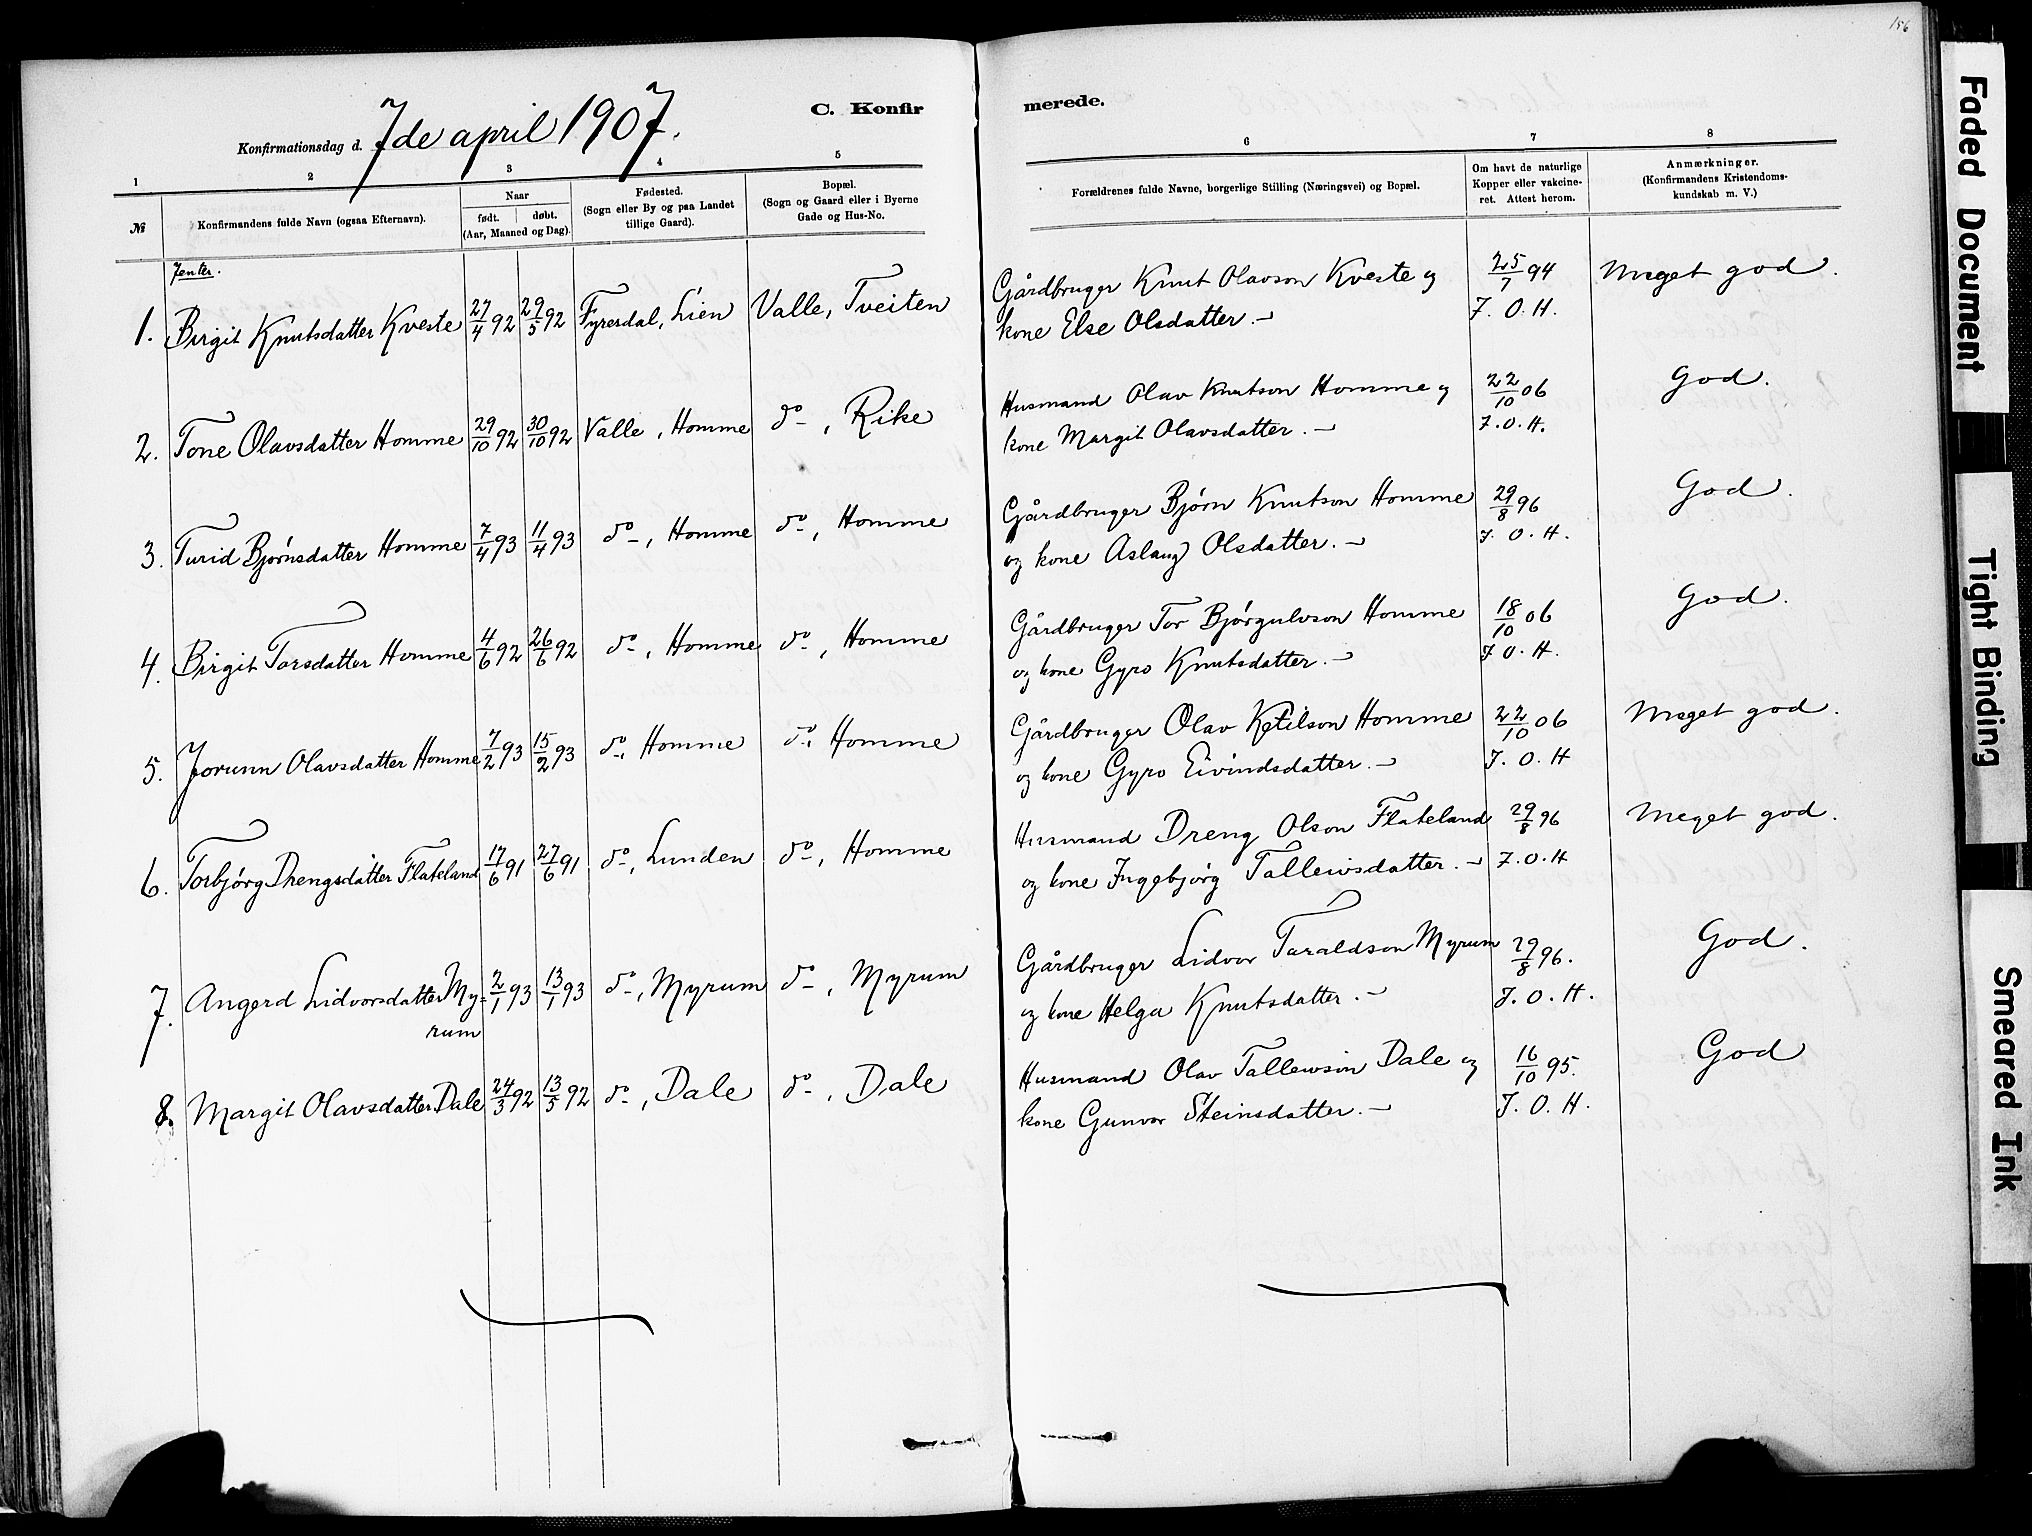 156
C. Konfirmerede.
Konfirmationsdag d. 7de april 1907.
1 2 3 4 5 6 7 8
№
Konfirmandens fulde Navn (ogsaa Efternavn).
Naar
født. døbt.
(Aar, Maaned og Dag).
Fødested.
(Sogn eller By og paa Landet
tillige Gaard).
Bopæl.
(Sogn og Gaard eller i Byerne
Gade og Hus-No.
Forældrenes fulde Navne, borgerlige Stilling (Næringsvei) og Bopæl.
Om havt de naturlige
Kopper eller vakcine-
ret. Attest herom.
Anmærkninger.
(Konfirmandens Kristendoms-
kundskab m. V.)
Jenter.
1. Birgit Knutsdatter Kveste 27/4 92 29/5 92 Fyresdal, Lien Valle, Tveiten Gårdbruger Knut Olavson Kveste og 25/7 94 Meget god.
kone Else Olsdatter. – J. O. H.
2. Tone Olavsdatter Homme 29/10 92 30/10 92 Valle, Homme do, Rike Husmand Olav Knutson Homme og 22/10 06 God.
kone Margit Olavsdatter. – J. O. H.
3. Turid Bjørnsdatter Homme 7/4 93 11/4 93 do, Homme do, Homme Gårdbruger Bjørn Knutson Homme 29/8 96 God.
og kone Aslaug Olsdatter. – J. O. H.
4. Birgit Torsdatter Homme 4/6 92 26/6 92 do, Homme do, Homme Gårdbruger Tor Bjørgulvson Homme 18/10 06 God.
og kone Gyro Knutsdatter. – J. O. H.
5. Jorunn Olavsdatter Homme 7/2 93 15/2 93 do, Homme do, Homme Gårdbruger Olav Ketilson Homme 22/10 06 Meget god.
og kone Gyro Eivindsdatter. – J. O. H
6. Torbjørg Drengsdatter Flateland 17/6 91 27/6 91 do, Lunden do, Homme Husmand Dreng Olson Flateland 29/8 96 Meget god.
og kone Ingebjørg Talleivsdatter. – J. O. H
7. Angerd Lidvorsdatter My- 2/1 93 13/1 93 do, Myrum do, Myrum Gårdbruger Lidvor Taraldson Myrum 29/8 96. God.
rum og kone Helga Knutsdatter. – J. O. H.
8. Margit Olavsdatter Dale 24/3 92 13/5 92 do, Dale do, Dale Husmand Olav Talleivson Dale og 16/10 95. God
kone Gunvor Steinsdatter. – J. O. H.
Faded Document
Tight Binding
Smeared Ink